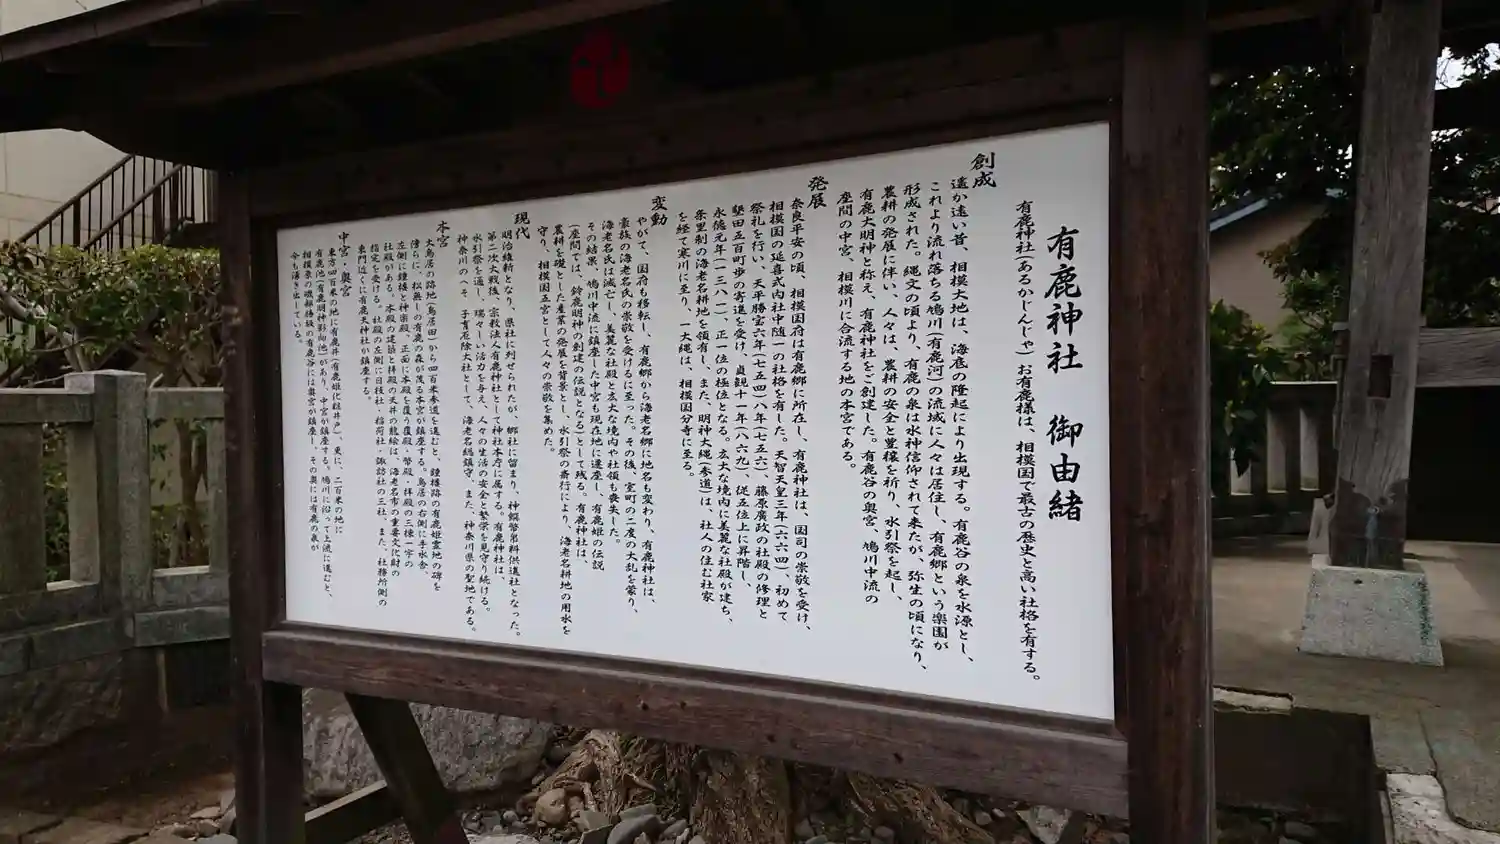 有鹿神社 御由緒
有鹿神社(あるかじんじゃ)お有鹿様は、相模国で最古の歴史と高い社格を有する。
創成
遥か遠い昔、相模大地は、海底の隆起により出現する。有鹿谷の泉を水源とし、
これより流れ落ちる鳩川(有鹿河)の流域に人々は居住し、有鹿郷という楽園が
形成された。縄文の頃より、有鹿の泉は水神信仰されて来たが、弥生の頃になり、
農耕の発展に伴い、人々は、農耕の安全と豊穣を祈り、水引祭を起し、
有鹿大明神と称え、有鹿神社をご創建した。有鹿谷の奥宮、鳩川中流の
座間の中宮、相模川に合流する地の本宮である。
発展
奈良平安の頃、相模国府は有鹿郷に所在し、有鹿神社は、国司の崇敬を受け、
相模国の延喜式内社中随一の社格を有した。天智天皇三年(六六四)、初めて
祭礼を行い、天平勝宝六年(七五四)八年(七五六) 藤原廣政の社殿の修理と
墾田五百町歩の寄進を受け、貞観十一年(八六九)、従五位上に昇階し、
永徳元年(一三八一)、正一位の極位となる。広大な境内に美麗な社殿が建ち、
条里制の海老名耕地を領有し、また、明神大縄(参道)は、社人の住む社家
を経て寒川に至り、一大縄は、相模国分寺に至る。
変動
やがて、国府も移転し、有鹿郷から海老名郷に地名も変わり、有鹿神社は、
豪族の海老名氏の崇敬を受けるに至った。その後、室町の二度の大乱を蒙り、
海老名氏は滅亡し、美麗な社殿と広大な境内や社領も喪失した。
その結果、鳩川中流に鎮座した中宮も現在地に遷座し、有鹿姫の伝説
(座間では、鈴鹿明神の創建の伝説となる)として残る。有鹿神社は、
農耕を礎とした産業の発展を背景とし、水引祭の斎行により、海老名耕地の用水を
守り、相模国五宮として人々の崇敬を集めた。
現代
明治維新となり、県社に列せられたが、郷社に留まり、神饌幣帛料供進社となった。
第二次大戦後、宗教法人有鹿神社として神社本庁に属する。有鹿神社は、
水引祭を通し、瑞々しい活力を与え、人々の生活の安全と繁栄を見守り続ける。
神奈川のへそ、子育厄除大社として、海老名総鎮守、また、神奈川県の聖地である。
本宮
大鳥居の路地(鳥居田)から四百米参道を進むと、鐘楼跡の有鹿姫霊地の碑を
傍らに、松無しの有鹿の森が茂る本宮が鎮座する。鳥居の右側に手水舎
左側に鐘楼と神楽殿、正面に本殿を覆う覆殿・幣殿・拝殿の三棟一宇の
社殿がある。本殿の建築と拝殿の天井の龍絵は、海老名市の重要文化財の
指定を受ける。社殿の左側に日枝社・稲荷社・諏訪社の三社、また、社務所側の
東門近くには有鹿天神社が鎮座する。
中宮・奥宮
東方四百米の地に有鹿井(有鹿姫化粧井戸)、更に、二百米の地に
有鹿池(有鹿明神影向池)があり、中宮が鎮座する。鳩川に沿って上流に進むと、
相模原の磯部勝坂の有鹿谷には奥宮が鎮座し、その奥には有鹿の泉が
今も湧き出している。